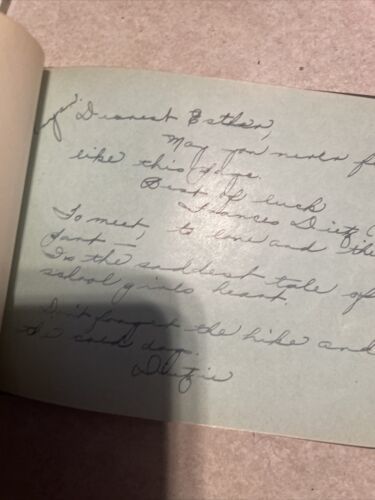 Dearest Esther,
May you never f
like this page.
Best of luck
Frances Dietz (
To meet, to love and the
part —
Is the saddest tale of
school girls heart.
Don't forget the hike and
the cold day.
Dietzie